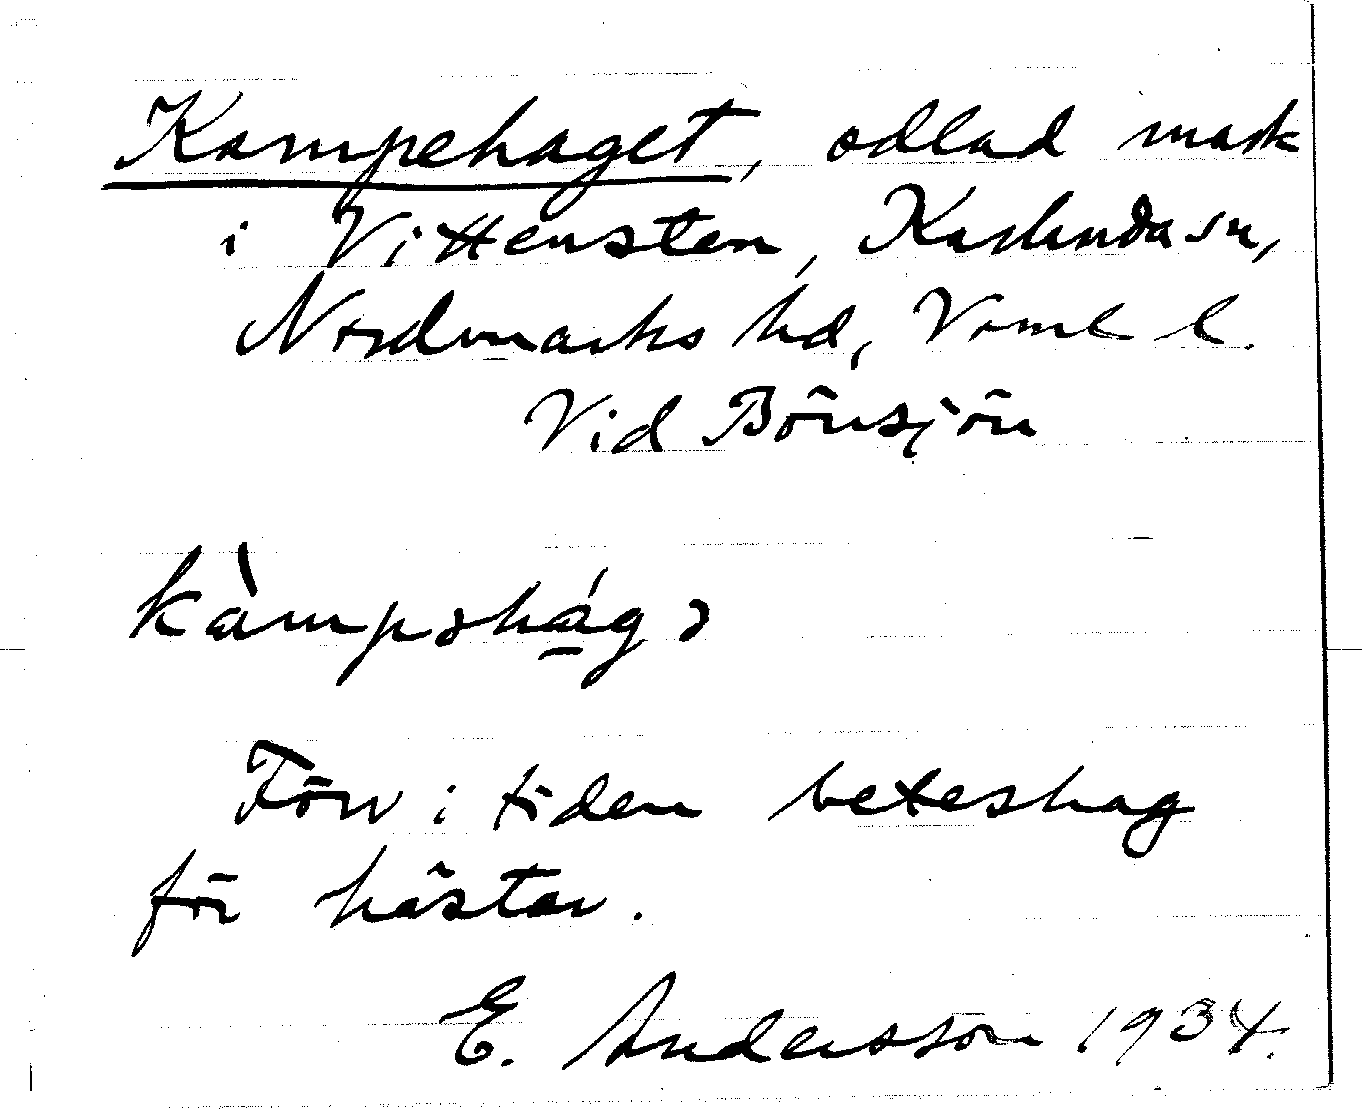 Kampehaget, odlad mark
i Vittensten, Karlanda sn,
Nordmarks hd, Värml l.
Vid Bönsjön
kàmpəhág ə
Förr i tiden beteshag
för hästar.
E. Andersson 1934.